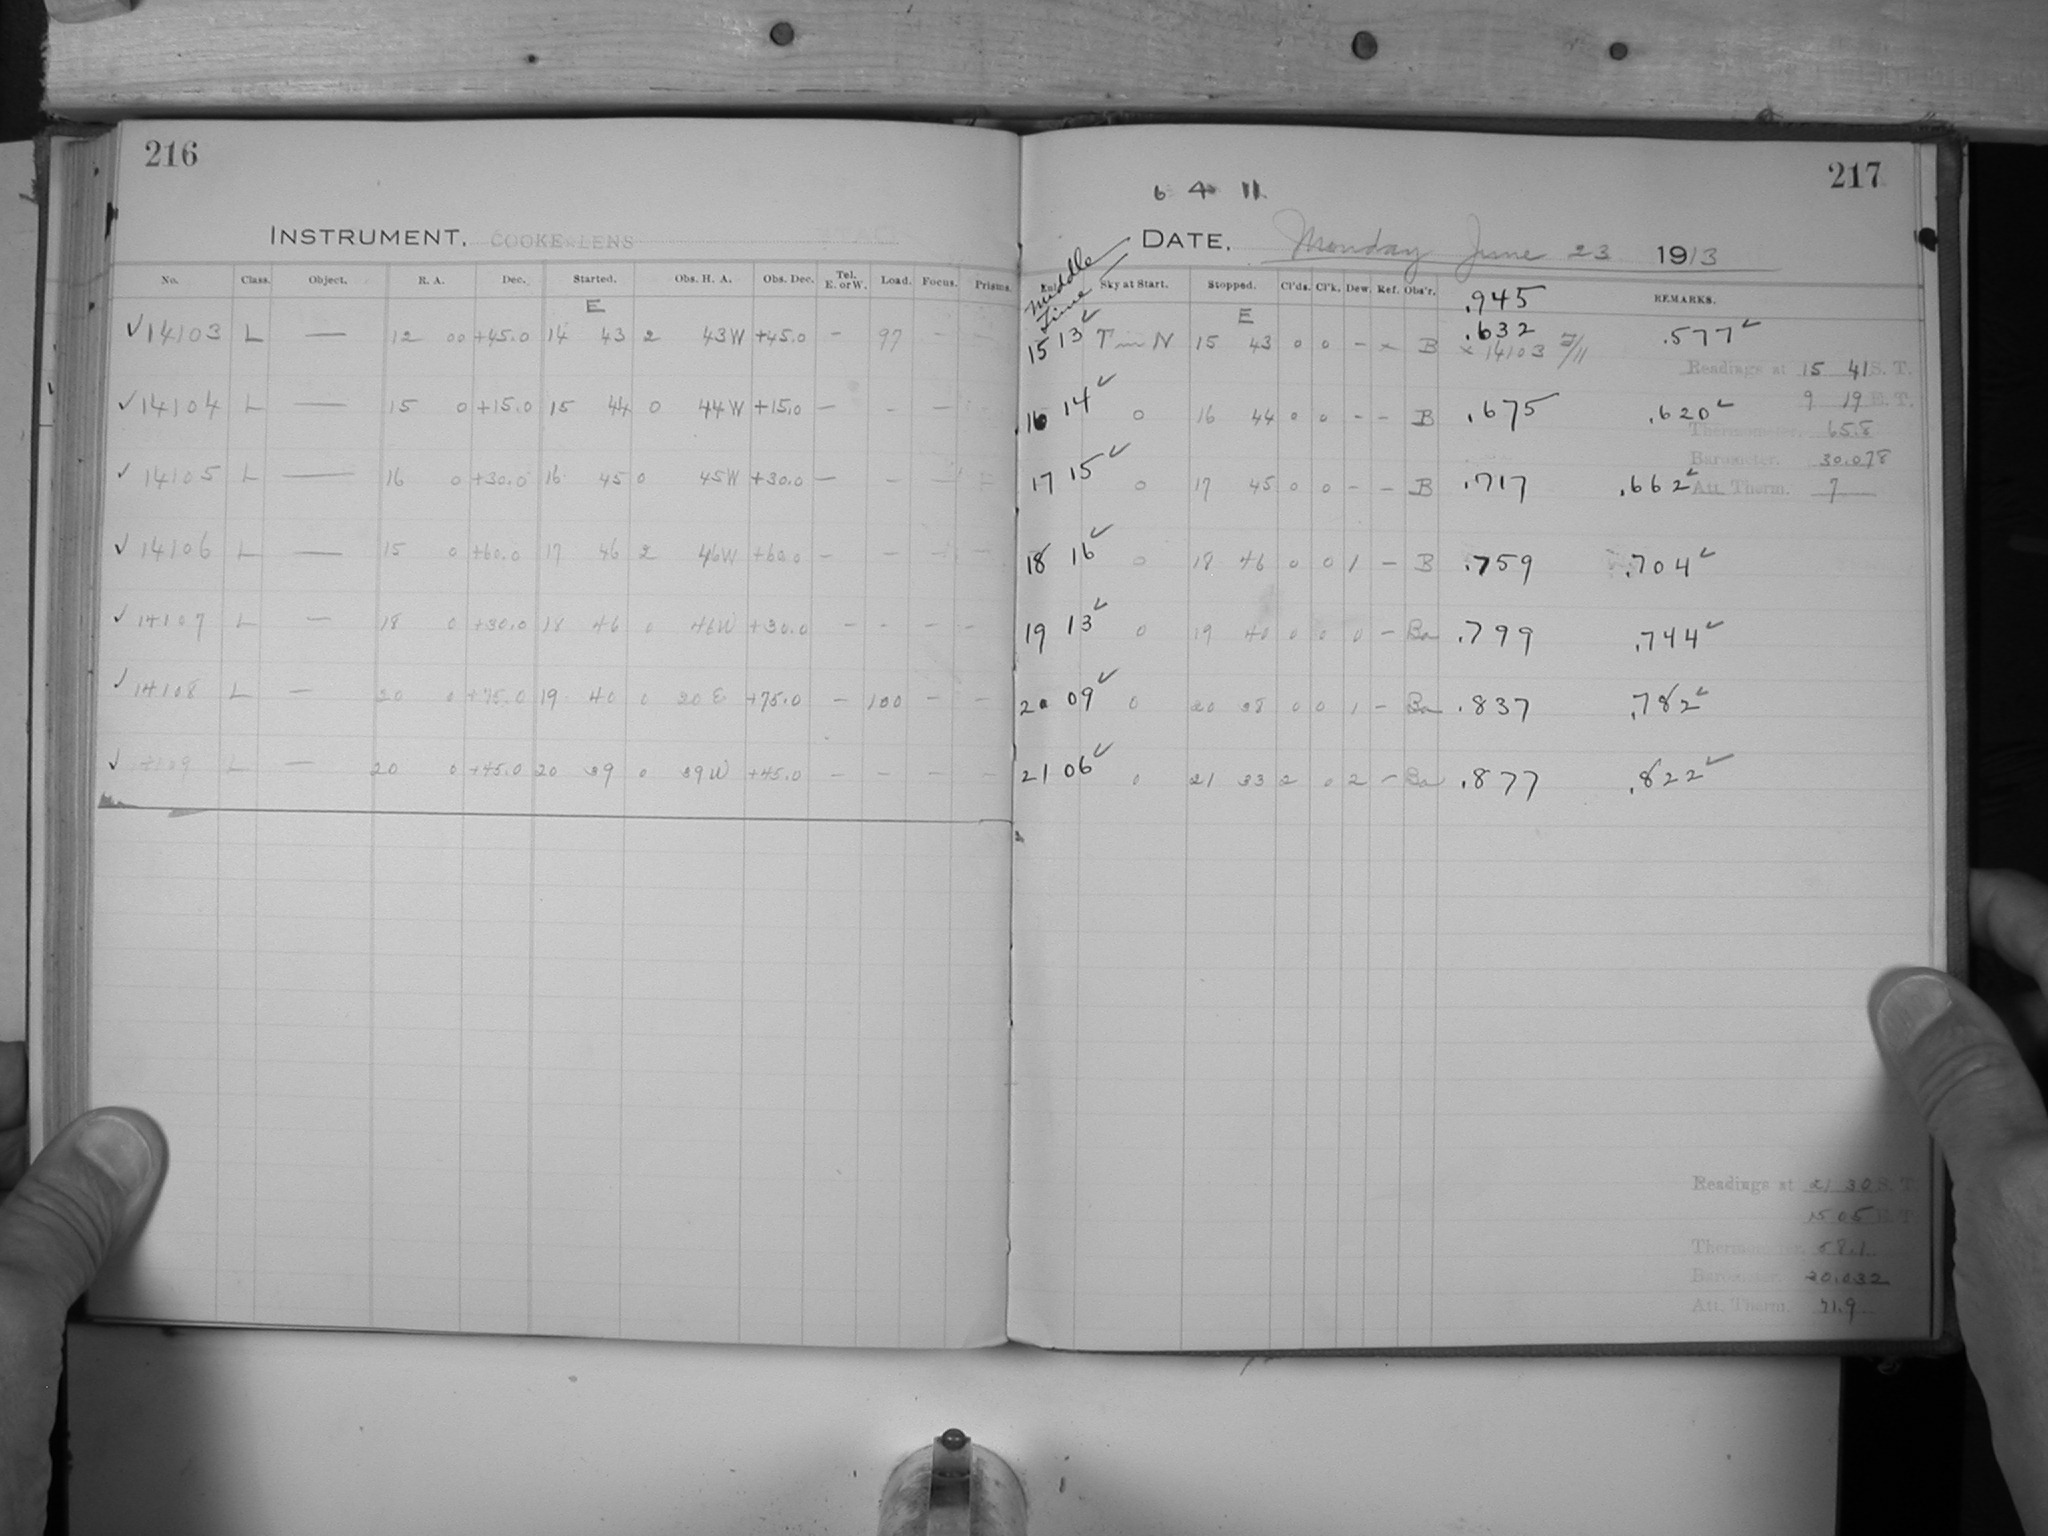 216
INSTRUMENT. COOKE LENS
No. Class. Object. R. A. Dec. Started. Obs. H. A. Obs. Dec. Tel. E. or W. Load. Focus. Prisms.
E
✓ 14103 L — 12 00 +45.0 14 43 2 43W +45.0 – 97 – –
✓ 14104 L — 15 0 +15.0 15 44 0 44W +15.0 – – –
✓ 14105 L — 16 0 +30.0 16 45 0 45W +30.0 – – –
✓ 14106 L — 15 0 +60.0 17 46 2 46W +60.0 – – – –
✓ 14107 L — 18 0 +30.0 18 46 0 46W +30.0 – – – –
✓ 14108 L — 20 0 +75.0 19 40 0 20E +75.0 – 100 – –
✓ 14109 L — 20 0 +45.0 20 39 0 39W +45.0 – – – –
217
6 4 11
DATE. Monday June 23 1913
Middle Time
Sky at Start. Stopped. Cl'ds. Cl'k. Dew. Ref. Obs'r. REMARKS.
.945
E
15 13 ✓ T — N 15 43 0 0 – × B .632 .577 ✓
× 14103 7/11
Readings at 15 41 S. T.
9 19 E. T.
16 14 ✓ 0 16 44 0 0 – – B .675 .620 ✓
Thermometer. 65.8
Barometer. 30.078
17 15 ✓ 0 17 45 0 0 – – B .717 .662 ✓
Att. Therm. 7
18 16 ✓ 0 18 46 0 0 1 – B .759 .704 ✓
19 13 ✓ 0 19 40 0 0 0 – Ba .799 .744 ✓
20 09 ✓ 0 20 38 0 0 1 – Ba .837 .782 ✓
21 06 ✓ 0 21 33 2 0 2 – Ba .877 .822 ✓
Readings at 21 30 S. T.
15 05 E. T.
Thermometer. 58.1
Barometer. 30.032
Att. Therm. 71.9